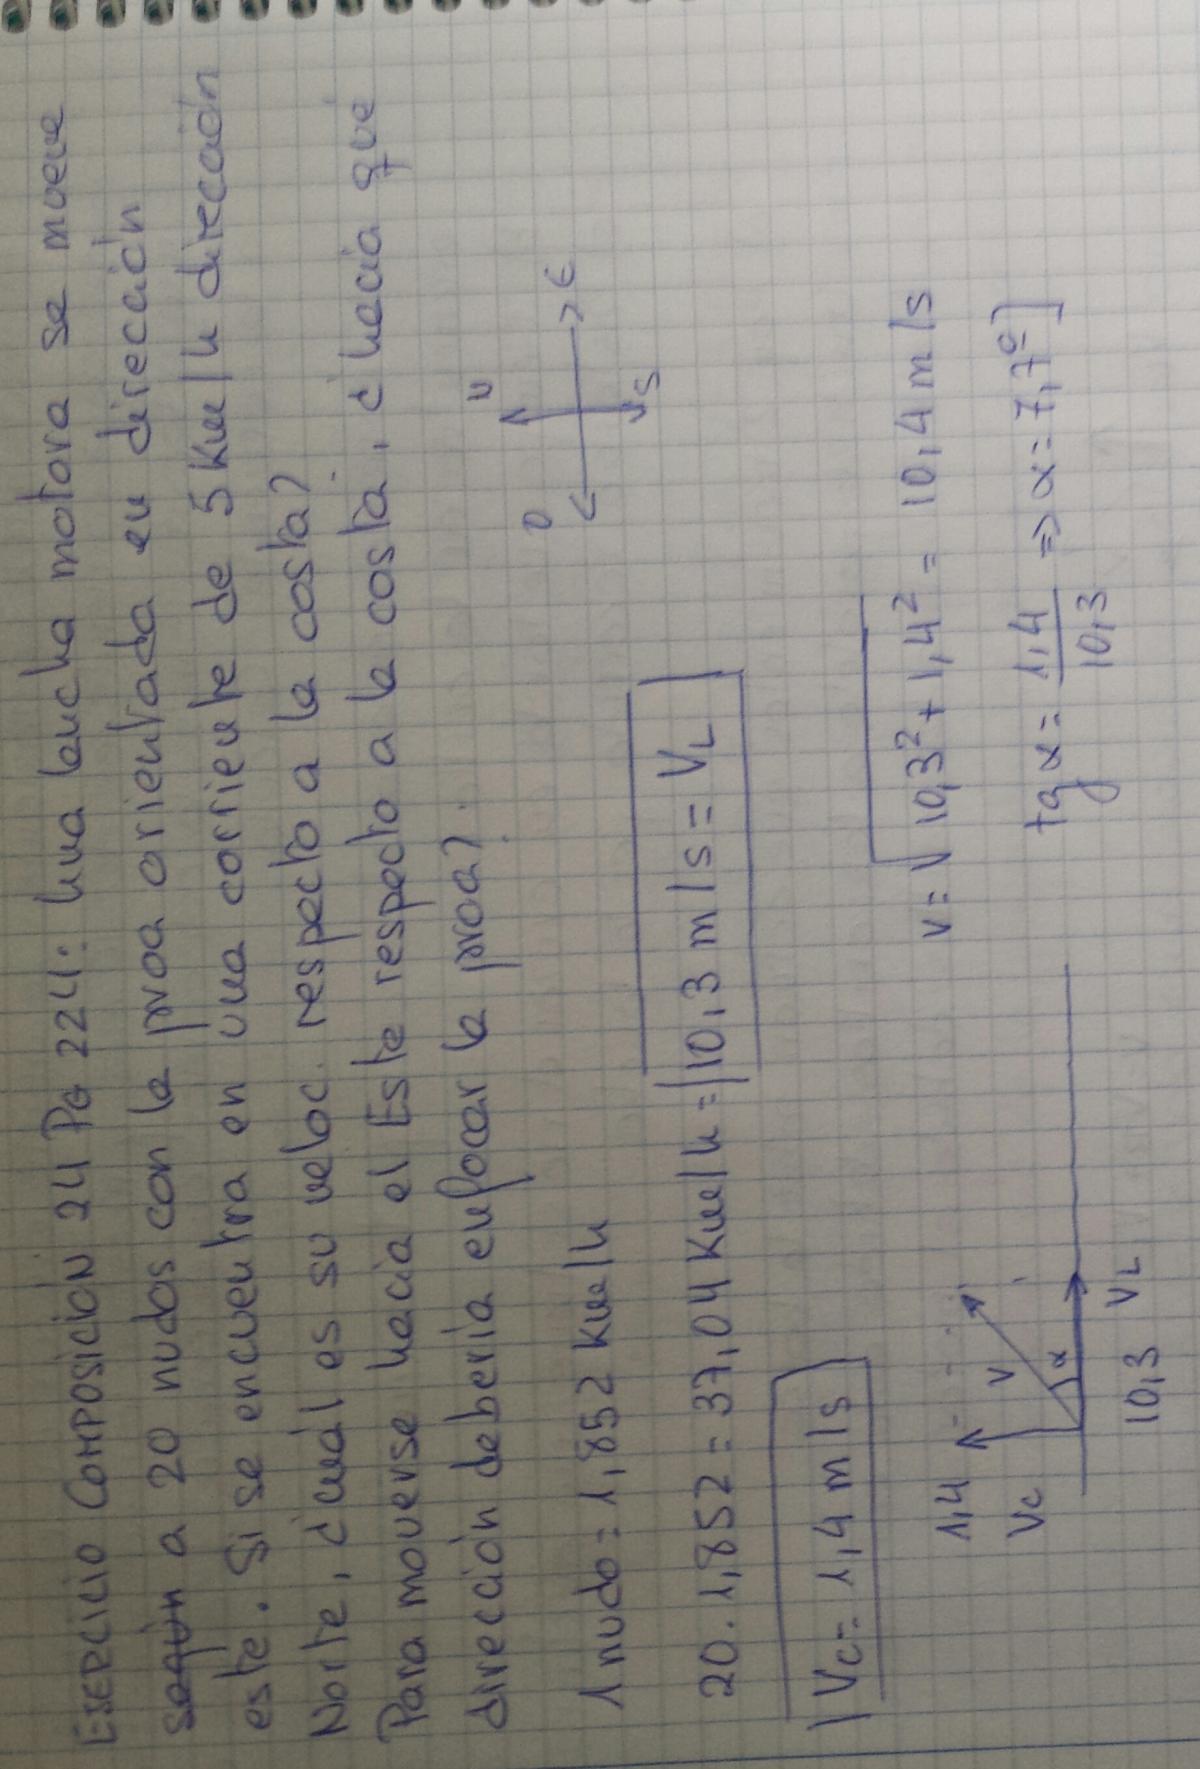 EJERCICIO COMPOSICIÓN 24 PG 224: Una lancha motora se mueve
según a 20 nudos con la proa orientada en dirección
este. Si se encuentra en una corriente de 5 Km/h dirección
Norte, ¿cuál es su veloc. respecto a la costa?
Para moverse hacia el Este respecto a la costa, ¿hacia qué
dirección debería enfocar la proa?
N
O
E
S
1 nudo = 1,852 Km/h
20 · 1,852 = 37,04 Km/h = 10,3 m/s = VL
Vc = 1,4 m/s
1,4
Vc
V
α
10,3 VL
v = √10,3² + 1,4² = 10,4 m/s
tg α = 1,4/10,3 => α = 7,7º